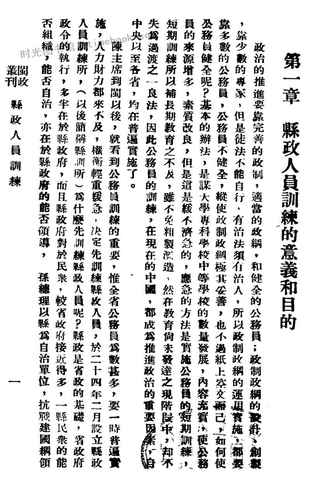 第一章　縣政人員訓練的意義和目的
政治的推進要靠完善的政制，適當的政綱，和健全的公務員；政制政綱的設計、創製
，靠少數的專家，但是徒法不能自行，有治法須有治人，所以政制政綱的運用實施，都要
靠多數的公務員，公務員不健全，縱使政制政綱極其妥善，也不過紙上空文而已，如何使
公務員健全呢？基本的辦法，是謀大學專科學校中等學校的數量發展，內容充實，使公務
員的來源增多，素質改良，但是這是緩不濟急的，應急的方法是實施公務員的短期訓練，
短期訓練所以補長期教育之不及，雖不免粗製濫造，然在教育尚未發達之現階段中，却不
失為過渡之一良法，因此公務員的訓練，在現在的中國，都成為推進政治的重要因素，自
中央以至各省，均在普遍實施了。
陳主席到閩以後，就看到公務員訓練的重要，惟全省公務員為數甚多，要一時普遍實
施，人力財力都來不及，權衡輕重緩急，决定先訓練縣政人員，於二十四年二月設立縣政
人員訓練所，（以後簡稱縣訓所）為什麼先訓練縣政人員呢？縣政是省政的基礎，省政府
政令的執行，多半在於縣政府，而且縣政府對於民衆，較省政府接近得多，一縣民衆的能
否組織，能否自治，亦在於縣政府的能否領導，　孫總理以縣為自治單位，抗戰建國綱領
閩政
叢刊
縣政人員訓練
一